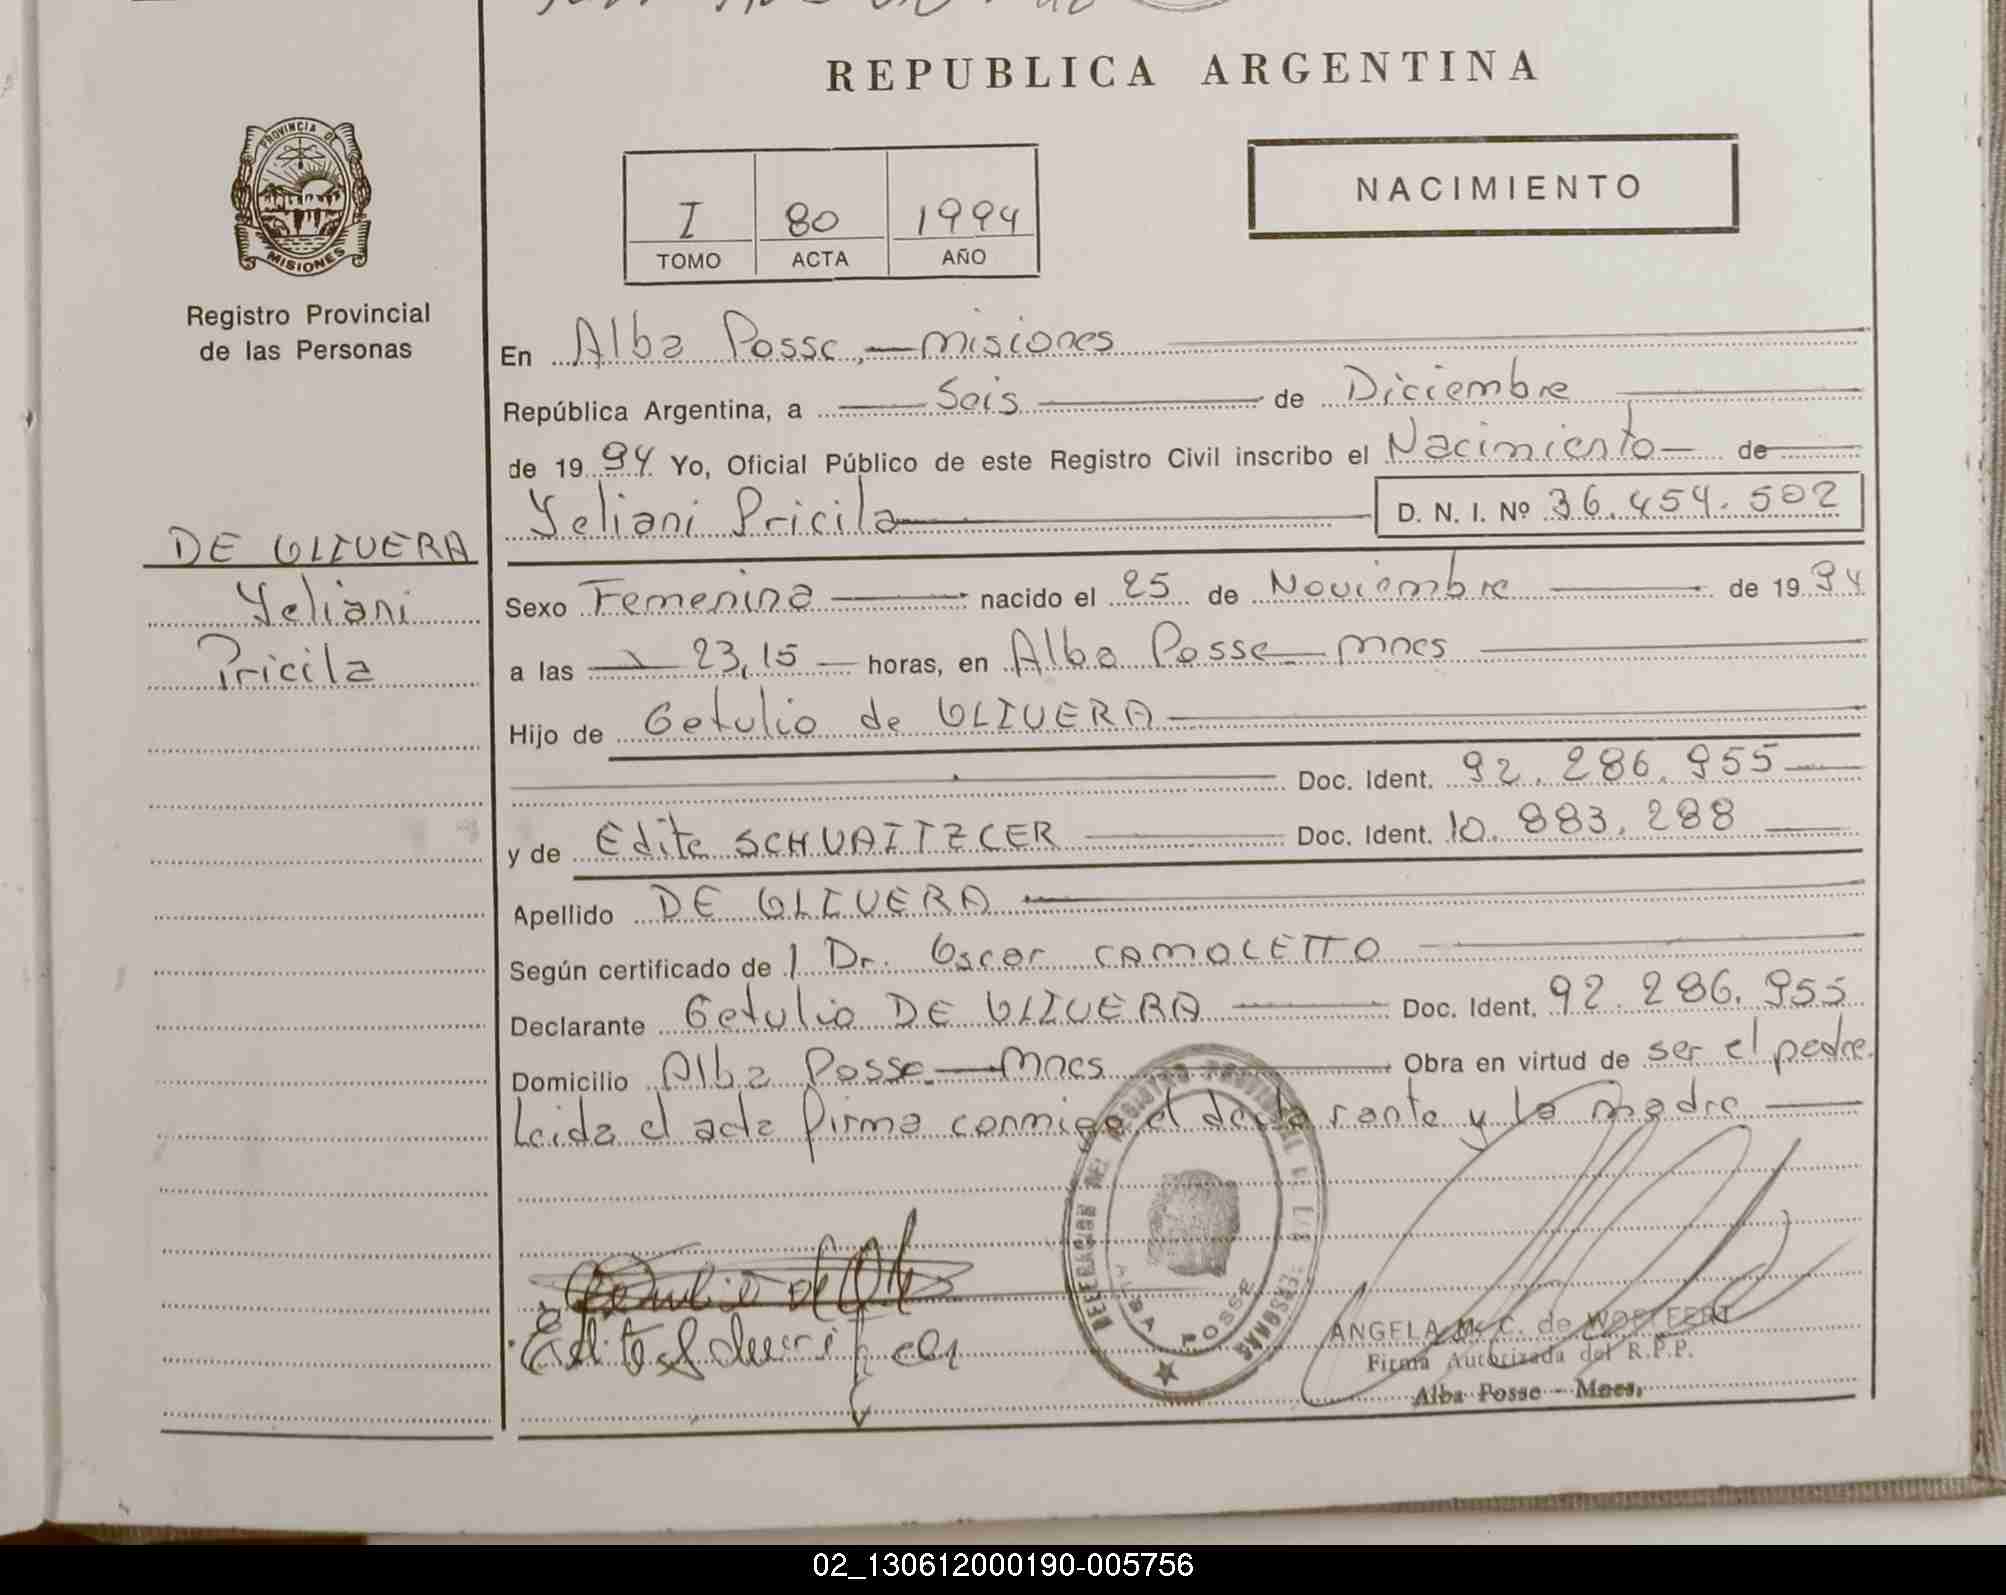 REPUBLICA ARGENTINA
PROVINCIA DE
MISIONES
Registro Provincial
de las Personas
I 80 1994
TOMO ACTA AÑO
NACIMIENTO
En Alba Posse,—misiones
República Argentina, a — Seis — de Diciembre
de 1994 Yo, Oficial Público de este Registro Civil inscribo el Nacimiento — de
Yeliani Pricila — D. N. I. Nº 36.454.502
DE OLIVERA
Yeliani
Pricila
Sexo Femenina — nacido el 25 de Noviembre — de 1994
a las — 23,15 — horas, en Alba Posse — Mnes
Hijo de Getulio de OLIVERA
Doc. Ident. 92.286.955
y de Edite SCHVAITZCER — Doc. Ident. 10.883.288
Apellido DE OLIVERA
Según certificado de / Dr. Oscar CAMOLETTO
Declarante Getulio DE OLIVERA — Doc. Ident. 92.286.955
Domicilio Alba Posse.—Mnes — Obra en virtud de ser el padre.
Leida el acta firma conmigo el declarante y la madre —
DELEGACION DEL REGISTRO PROVINCIAL DE LAS PERSONAS
ALBA POSSE
ANGELA M. C. de
Firma Autorizada del R.P.P.
Alba Posse - Mnes.
02_130612000190-005756